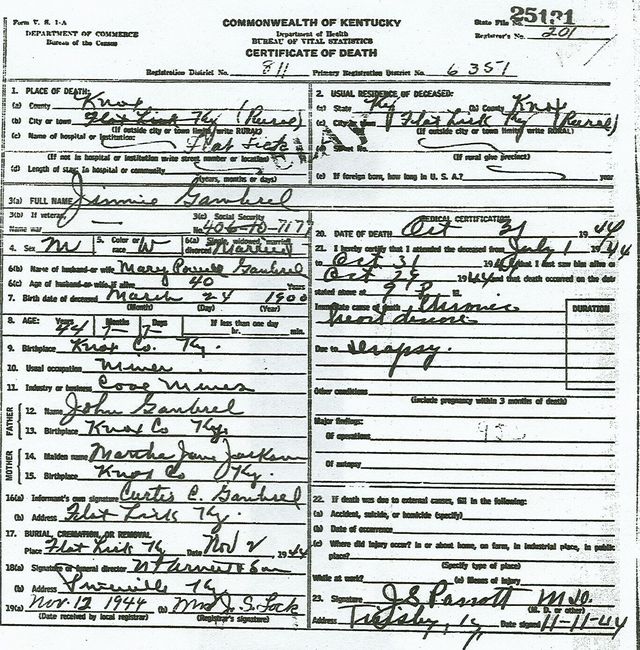 Form V. S. 1-A
COMMONWEALTH OF KENTUCKY
State File No. 25131
DEPARTMENT OF COMMERCE
Department of Health
Registrar's No. 201
Bureau of the Census
BUREAU OF VITAL STATISTICS
CERTIFICATE OF DEATH
Registration District No. 811 Primary Registration District No. 6351
1. PLACE OF DEATH:
(a) County Knox
(b) City or town Flat Lick Ky (Rural)
(If outside city or town limits, write RURAL)
(c) Name of hospital or institution: Flat Lick
(If not in hospital or institution write street number or location)
(d) Length of stay, in hospital or community
(years, months or days)
2. USUAL RESIDENCE OF DECEASED:
(a) State Ky (b) County Knox
(c) City or town Flat Lick Ky (Rural)
(If outside city or town limits, write RURAL)
(If rural give precinct)
(e) If foreign born, how long in U. S. A.? years
3(a) FULL NAME Jimmie Gambrel
3(b) If veteran, Name war
3(c) Social Security No. 406-10-7177
4. Sex M 5. Color or race W 6(a) Single, widowed, married, divorced Married
6(b) Name of husband or wife Mary Powell Gambrel
6(c) Age of husband or wife, if alive 40 Years
7. Birth date of deceased March 24 1900
(Month) (Day) (Year)
8. AGE: Years 44 Months 7 Days 7 If less than one day hr. min.
9. Birthplace Knox Co. Ky.
10. Usual occupation Miner
11. Industry or business Coal Mines
FATHER
12. Name John Gambrel
13. Birthplace Knox Co Ky.
MOTHER
14. Maiden name Martha Jane Jackson
15. Birthplace Knox Co Ky.
16(a) Informant's own signature Curtis C. Gambrel
(b) Address Flat Lick Ky.
17. BURIAL, CREMATION, OR REMOVAL
Place Flat Lick Ky Date Nov 2 1944
18(a) Signature of funeral director
(b) Address Pineville Ky
19(a) Nov. 12 1944 (b) Mrs J. S. Lock
(Date received by local registrar) (Registrar's signature)
MEDICAL CERTIFICATION
20. DATE OF DEATH Oct 31 1944
21. I hereby certify that I attended the deceased from July 1 1944
to Oct 31 1944, that I last saw him alive on
Oct 29 1944 and that death occurred on the date
stated above at 9 P M.
Immediate cause of death Chronic
heart disease
DURATION
Due to Dropsy.
Other conditions
(Include pregnancy within 3 months of death)
Major findings:
Of operations
Of autopsy
22. If death was due to external causes, fill in the following:
(a) Accident, suicide, or homicide (specify)
(b) Date of occurrence
(c) Where did injury occur? In or about home, on farm, in industrial place, in public
place?
(Specify type of place)
While at work? (e) Means of injury
23. Signature J. S. Parrott M.D.
(M. D. or other)
Address Ky Date signed 11-11-44